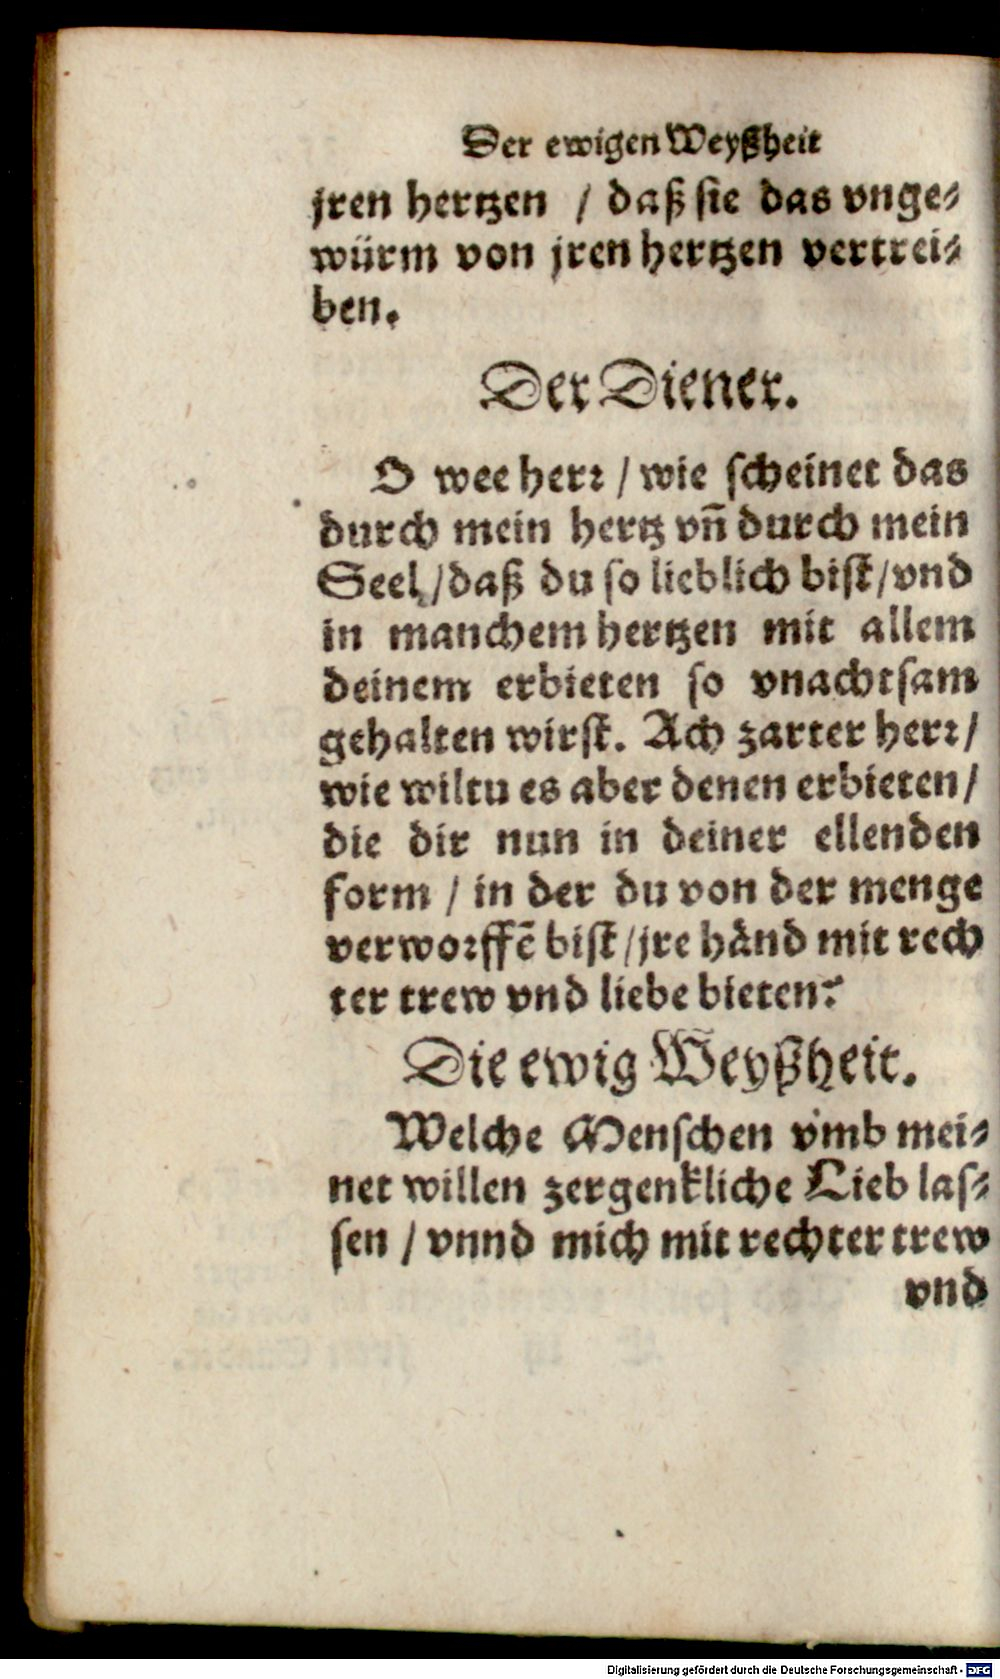 Der ewigen Weyßheit
jren hertzen / daß sie das vnge⸗
würm von jren hertzen vertrei⸗
ben.
Der Diener.
O wee herꝛ / wie scheinet das
durch mein hertz vñ durch mein
Seel / daß du so lieblich bist / vnd
in manchem hertzen mit allem
deinem erbieten so vnachtsam
gehalten wirst. Ach zarter herꝛ /
wie wiltu es aber denen erbieten /
die dir nun in deiner ellenden
form / in der du von der menge
verwoꝛffē bist / jre händ mit rech
ter trew vnd liebe bieten?
Die ewig Weyßheit.
Welche Menschen vmb mei⸗
net willen zergenkliche Lieb las⸗
sen / vnnd mich mit rechter trew
vnd
Digitalisierung gefördert durch die Deutsche Forschungsgemeinschaft - DFG